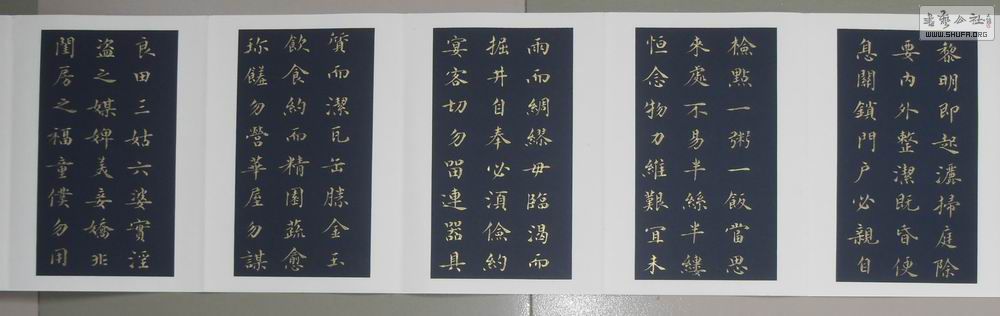 黎明即起灑掃庭除
要內外整潔既昏便
息關鎖門戶必親自
檢點一粥一飯當思
來處不易半絲半縷
恒念物力維艱冝未
雨而綢繆毋臨渴而
掘井自奉必須儉約
宴客切勿留連器具
質而潔瓦缶勝金玉
飲食約而精園蔬愈
珎饈勿營華屋勿謀
良田三姑六婆實淫
盜之媒婢美妾嬌非
閨房之福童僕勿用
書藝公社
WWW.SHUFA.ORG